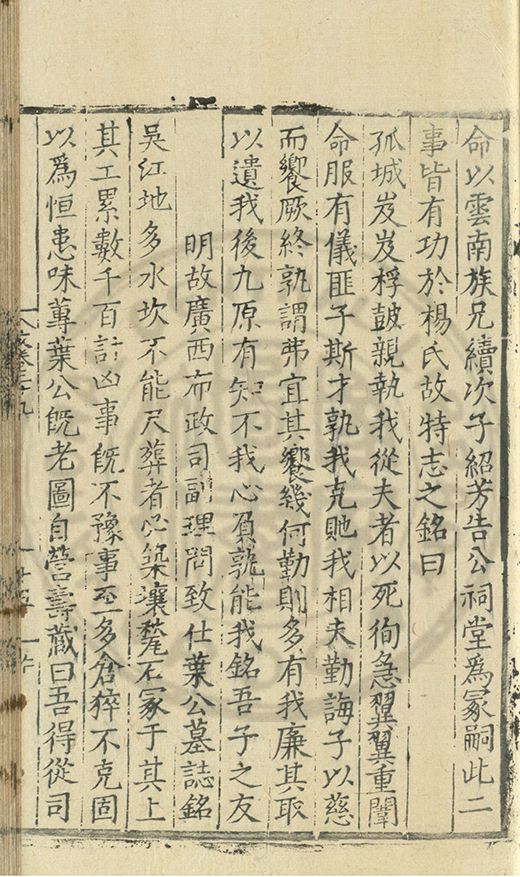 命以雲南族兄續次子紹芳告公祠堂爲冢嗣此二
事皆有功於楊氏故特志之銘曰
孤城岌岌桴皷親執我從夫者以死徇急翼翼重闈
命服有儀匪子斯才孰我克貤我相夫勤誨子以慈
而饗厥終孰謂弗宜其饗幾何勤則多有我廉其取
以遺我後九原有知不我心負孰能我銘吾子之友
明故廣西布政司副理問致仕葉公墓誌銘
吳江地多水坎不能尺葬者必築壤甃石冢于其上
其工累數千百計凶事旣不豫事至多倉猝不克固
以爲恒患味蓴葉公旣老圖自營壽藏曰吾得從司